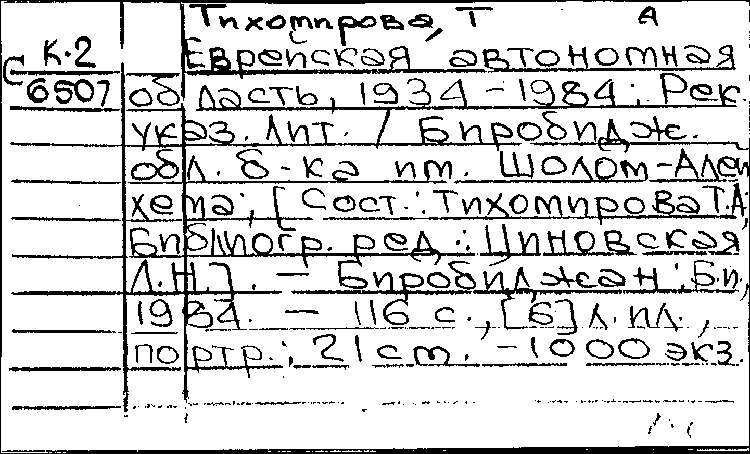 Тихомирова, Т А
К.2 Еврейская автономная
С 6507 область, 1934-1984: Рек.
указ. лит. / Биробидж.
обл. б-ка им. Шолом-Алей
хема; [Сост.: Тихомирова Т.А;
Библиогр. ред.: Циновская,
Л.Н.]. - Биробиджан: Би,
1984. - 116 с., [6] л. ил.,
портр.; 21 см. -1000 экз.